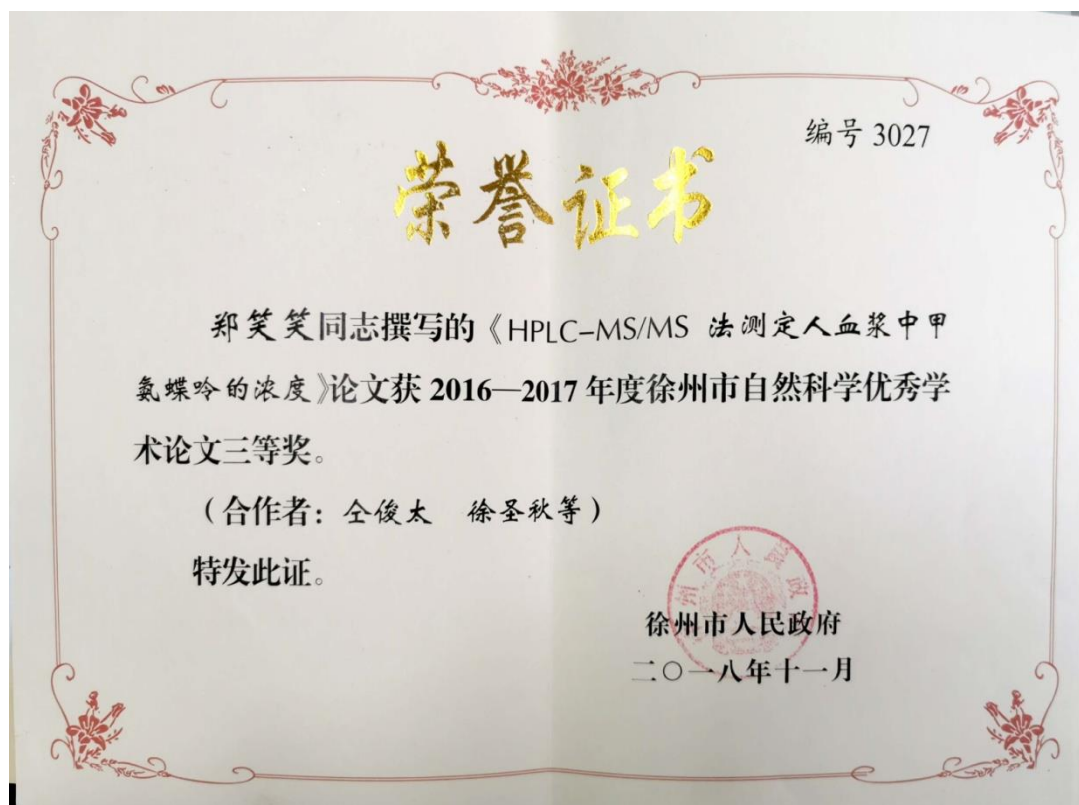 编号 3027
荣誉证书
郑笑笑同志撰写的《HPLC–MS/MS 法测定人血浆中甲
氨蝶呤的浓度》论文获 2016—2017 年度徐州市自然科学优秀学
术论文三等奖。
（合作者：仝俊太 徐圣秋等）
特发此证。
徐州市人民政府
二○一八年十一月